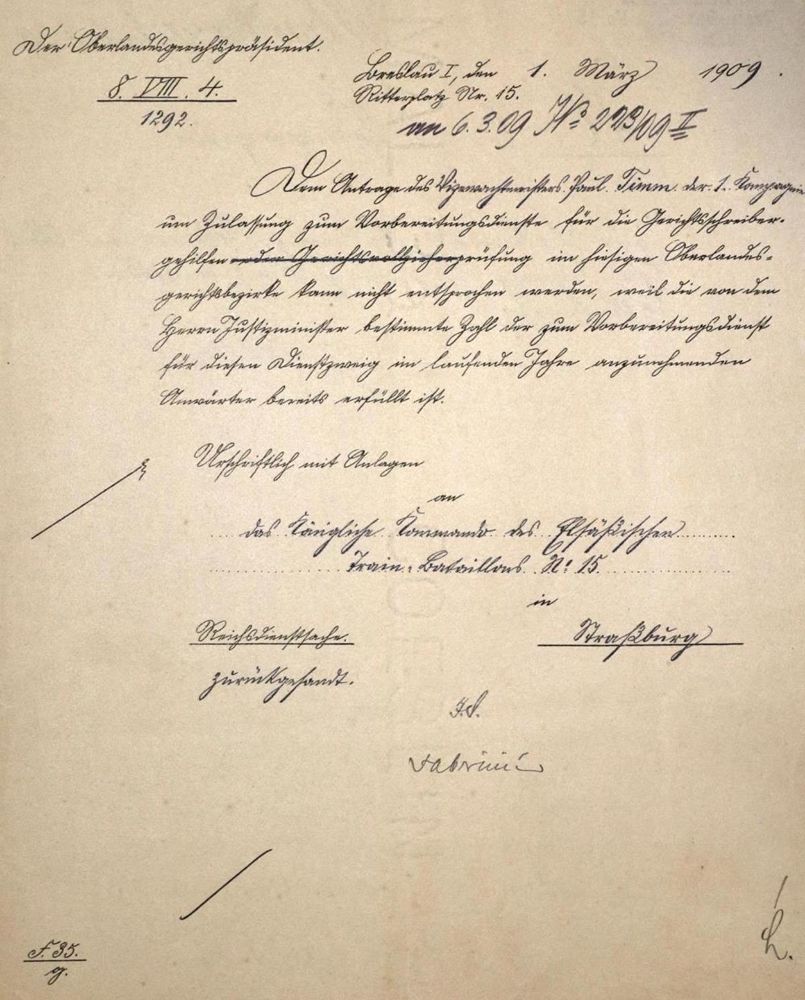 Der Oberlandesgerichtspräsident.
8. VIII. 4.
1292.
Breslau I, den 1. März 1909.
Ritterplatz Nr. 15.
an 6.3.09 No 223/09 II
Dem Antrage des Vizewachtmeisters Paul Timm der 1. Kompagnie
um Zulassung zum Vorbereitungsdienste für die Gerichtsschreiber-
gehilfen oder Gerichtsvollzieherprüfung im hiesigen Oberlandes-
gerichtsbezirke kann nicht entsprochen werden, weil die von dem
Herrn Justizminister bestimmte Zahl der zum Vorbereitungsdienst
für diesen Dienstzweig im laufenden Jahre anzunehmenden
Anwärter bereits erfüllt ist.
Urschriftlich mit Anlagen
an
das Königliche Kommando des Elsäßischen
Train-Bataillons No 15.
in
Reichsdienstsache.
Straßburg
zurückgesandt.
F. 35.
g.